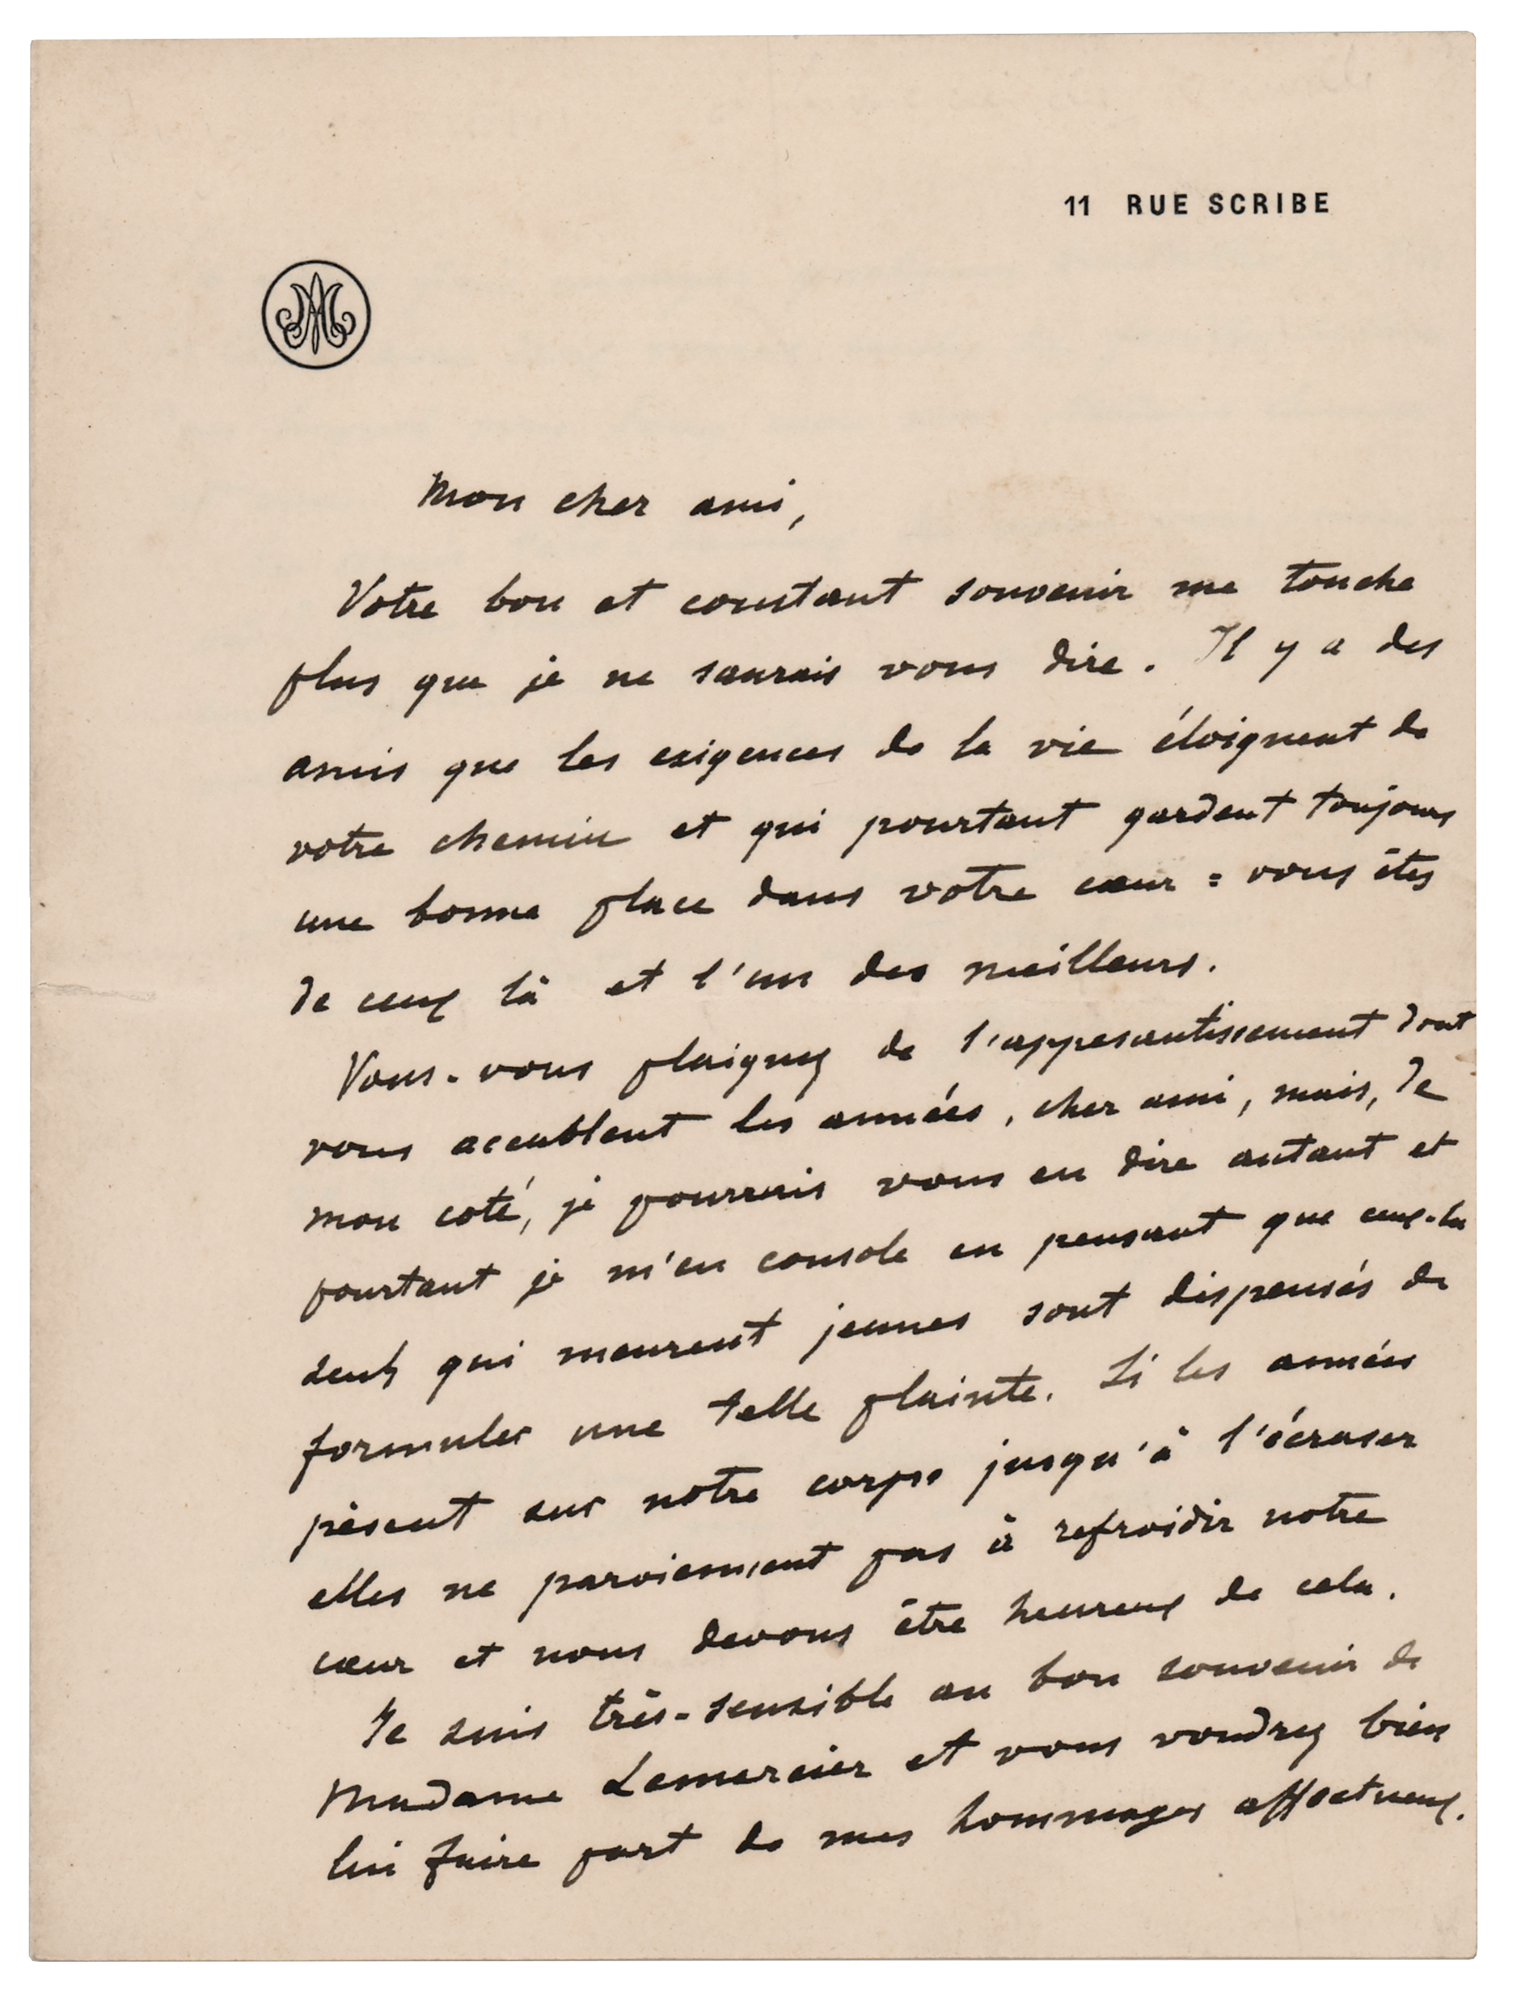 11 RUE SCRIBE
Mon cher ami,
Votre bon et constant souvenir me touche
plus que je ne saurais vous dire. Il y a des
amis que les exigences de la vie éloignent de
votre chemin et qui pourtant gardent toujours
une bonne place dans votre cœur : vous êtes
de ceux là et l'un des meilleurs.
Vous-vous plaignez de l'appesantissement dont
vous accablent les années, cher ami, mais, de
mon coté, je pourrais vous en dire autant et
pourtant je m'en console en pensant que ceux-la
seuls qui meurent jeunes sont dispensés de
formuler une telle plainte. Si les années
pèsent sur notre corps jusqu'à l'écraser
elles ne parviennent pas à refroidir notre
cœur et nous devons être heureux de cela.
Je suis très-sensible au bon souvenir de
Madame Lemercier et vous voudrez bien
lui faire part de mes hommages affectueux.